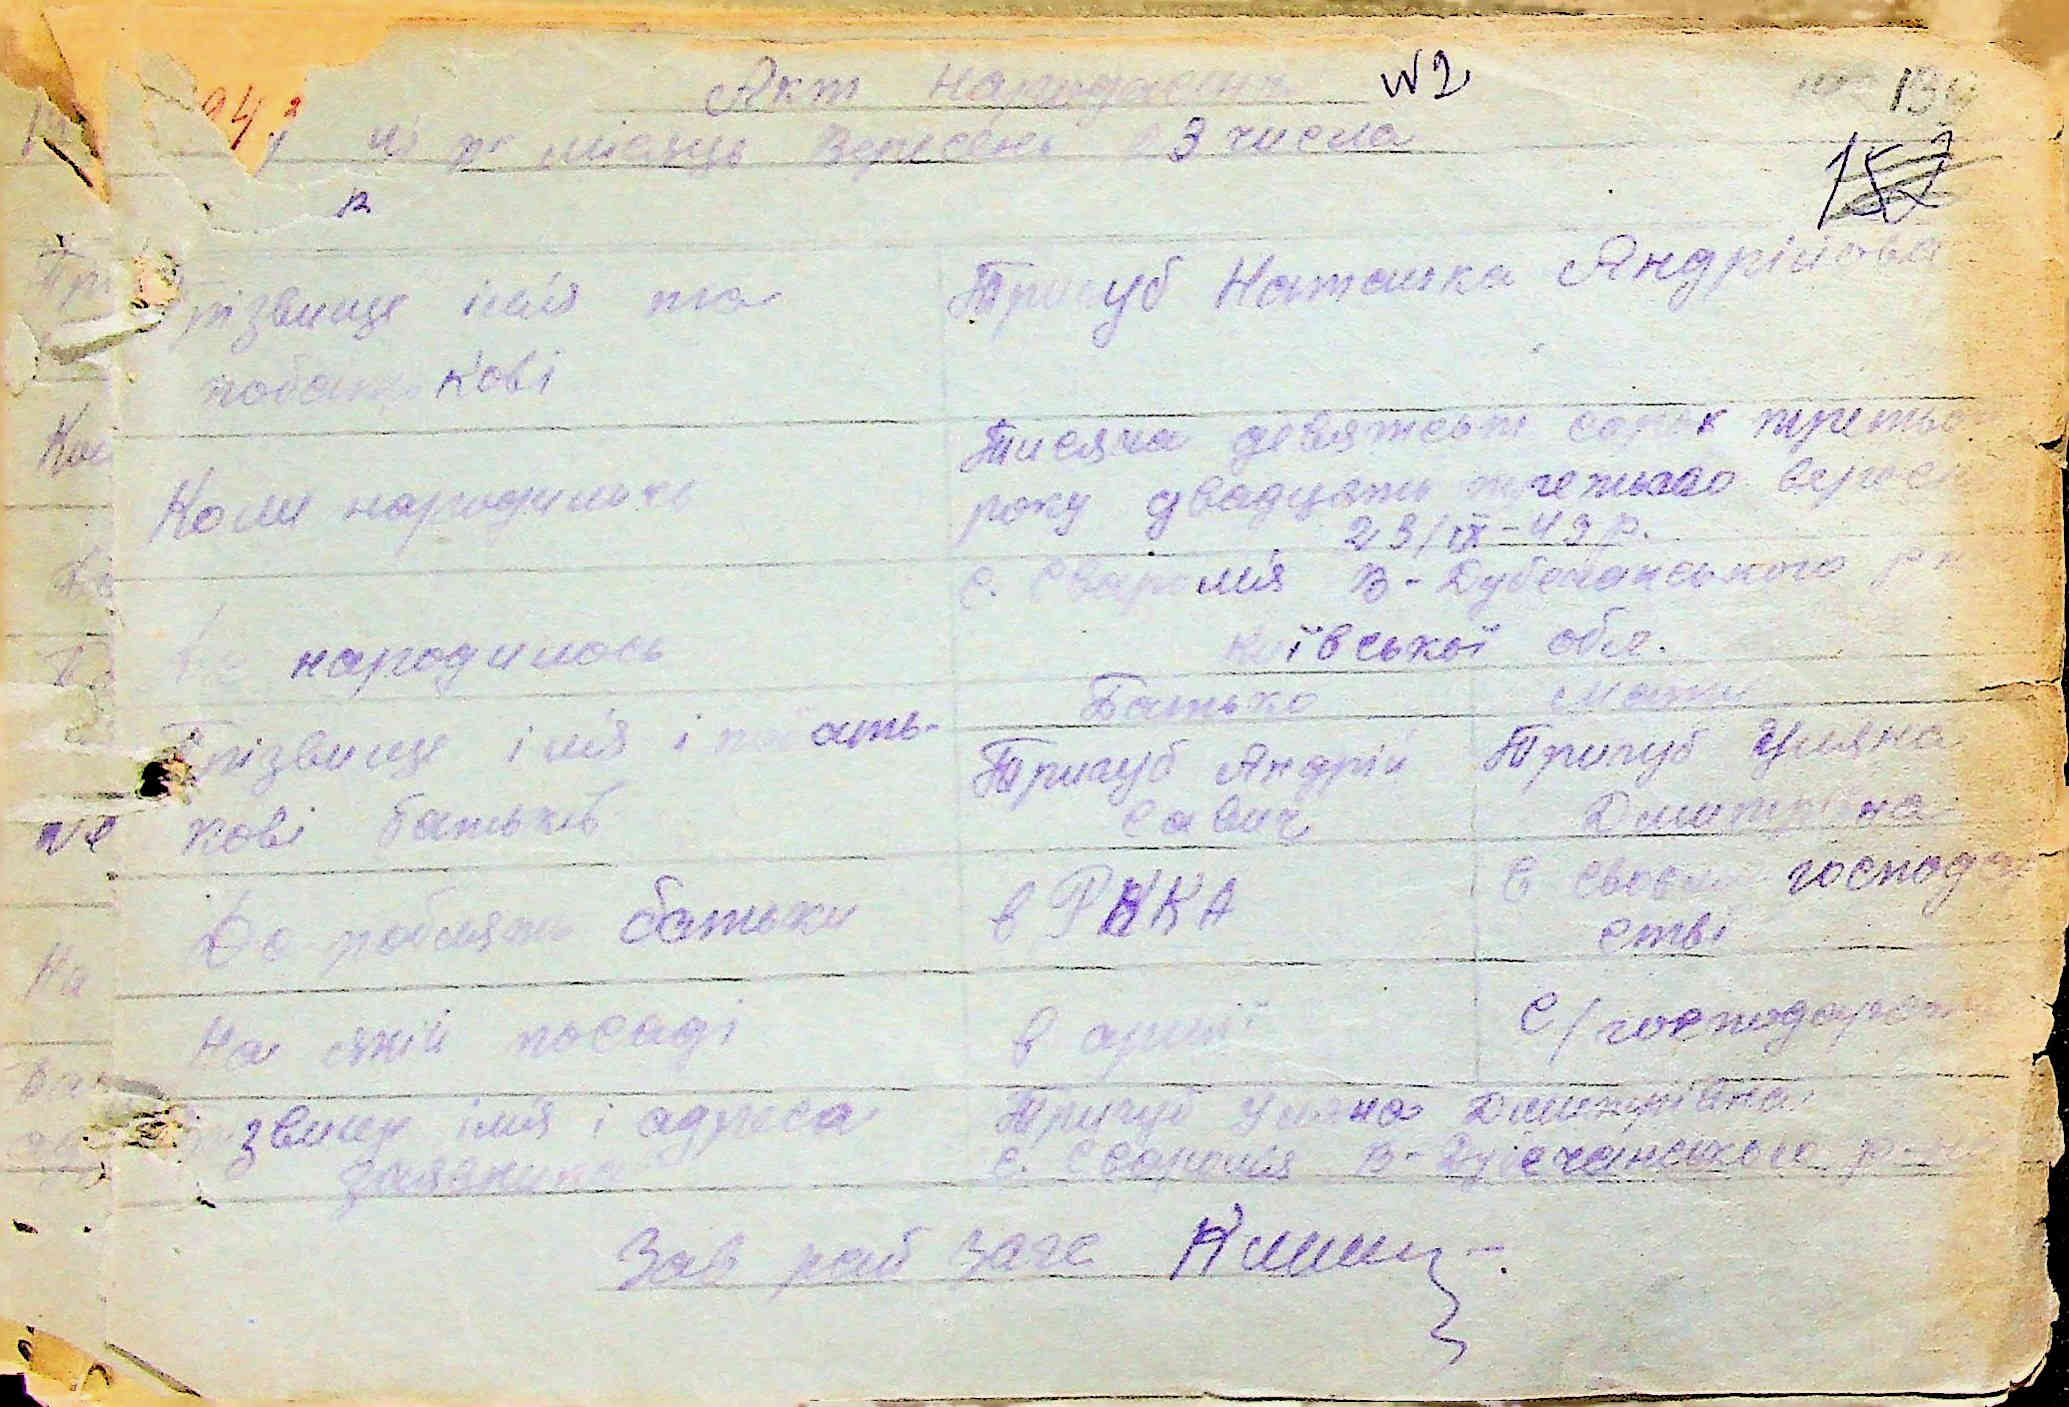 Акт народження N 2
місяць Вересень 23 числа
152
Прізвище ім'я та
побатькові
Тригуб Наташка Андрійовна
Коли народилось
Тисяча девятсот сорок третього
року двадцять третього вересня
23/IX-43 р.
народилось
с. Сваромія В-Дубечанського р-н
Київської обл.
Прізвище ім'я і побать-
кові батьків
Батько
Мати
Тригуб Андрій
Савич
Тригуб Уляна
Дмитрівна
Де роблять батьки
в РККА
В своєму господар
стві
На якій посаді
в армії
С/господарстві
Прізвище ім'я і адреса
заявника
Тригуб Уляна Дмитрівна
с. Сваромія В-Дубечанського р-на
Зав рай загс